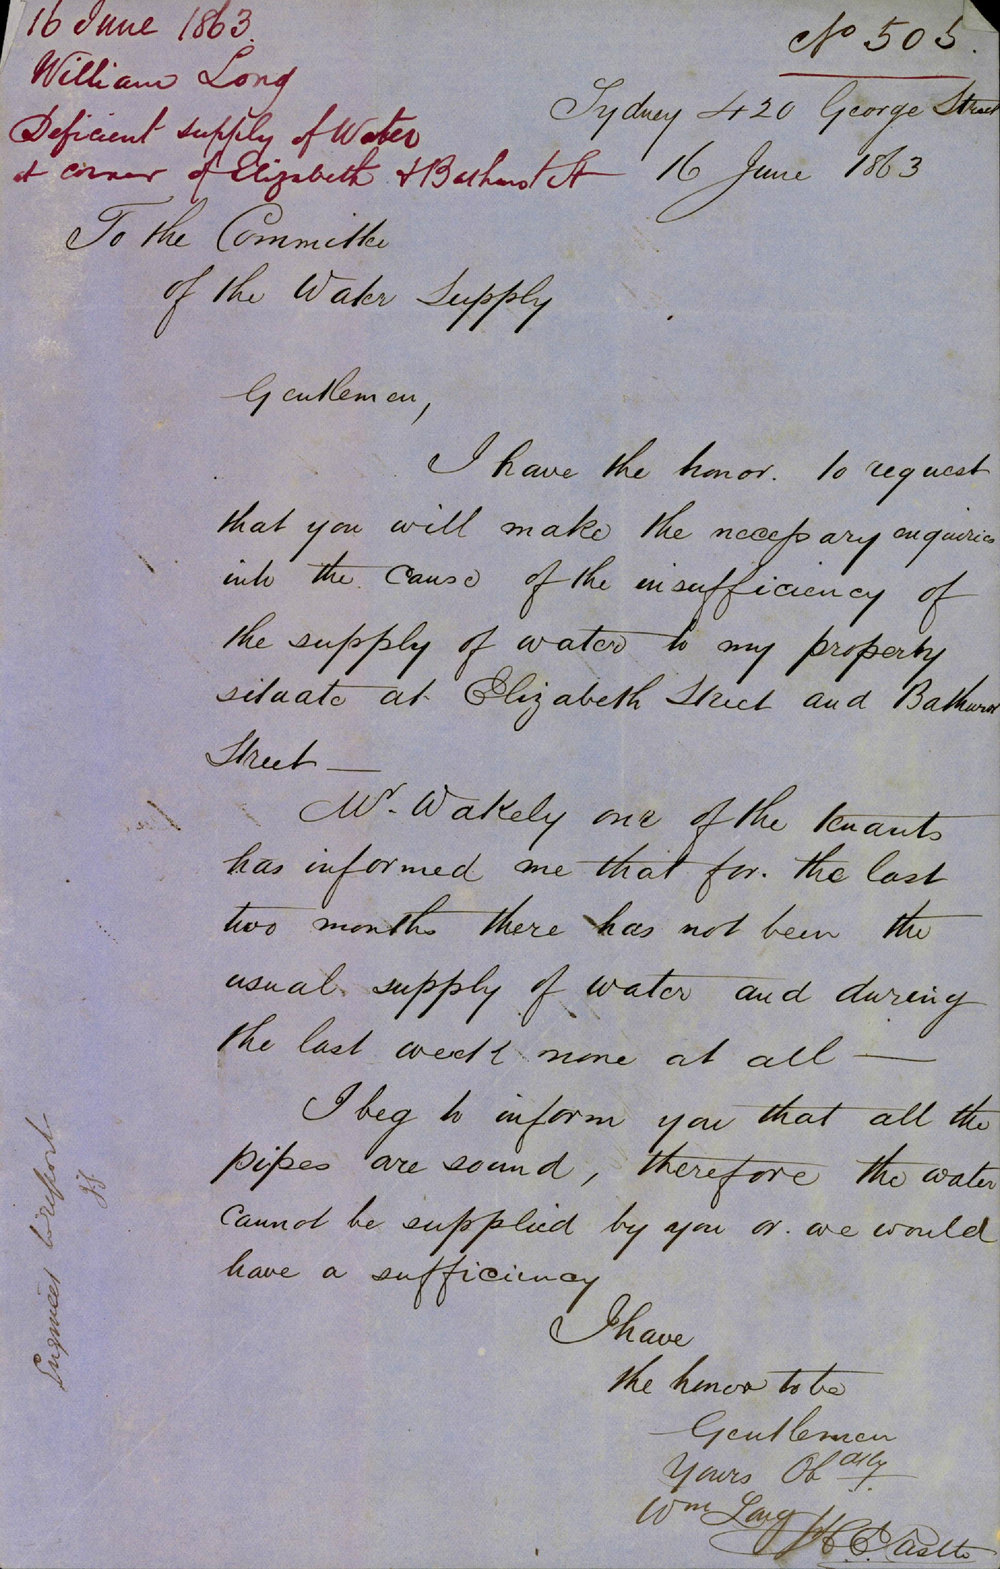 16 June 1863.
William Long
Deficient supply of Water
at corner of Elizabeth & Bathurst St
No 505.
Sydney 420 George Street
16 June 1863
To the Committee
of the Water Supply
Gentlemen,
I have the honor. to request
that you will make the necessary enquiries
into the cause of the insufficiency of
the supply of water to my property
situate at Elizabeth Street and Bathurst
Street —
Mr. Wakely one of the tenants
has informed me that for. the last
two months there has not been the
usual supply of water and during
the last week none at all —
I beg to inform you that all the
pipes are sound, therefore the water
cannot be supplied by you or. we would
have a sufficiency
I have
the honor to be
Gentlemen
Yours Ob
Wm Long
Engineer to report